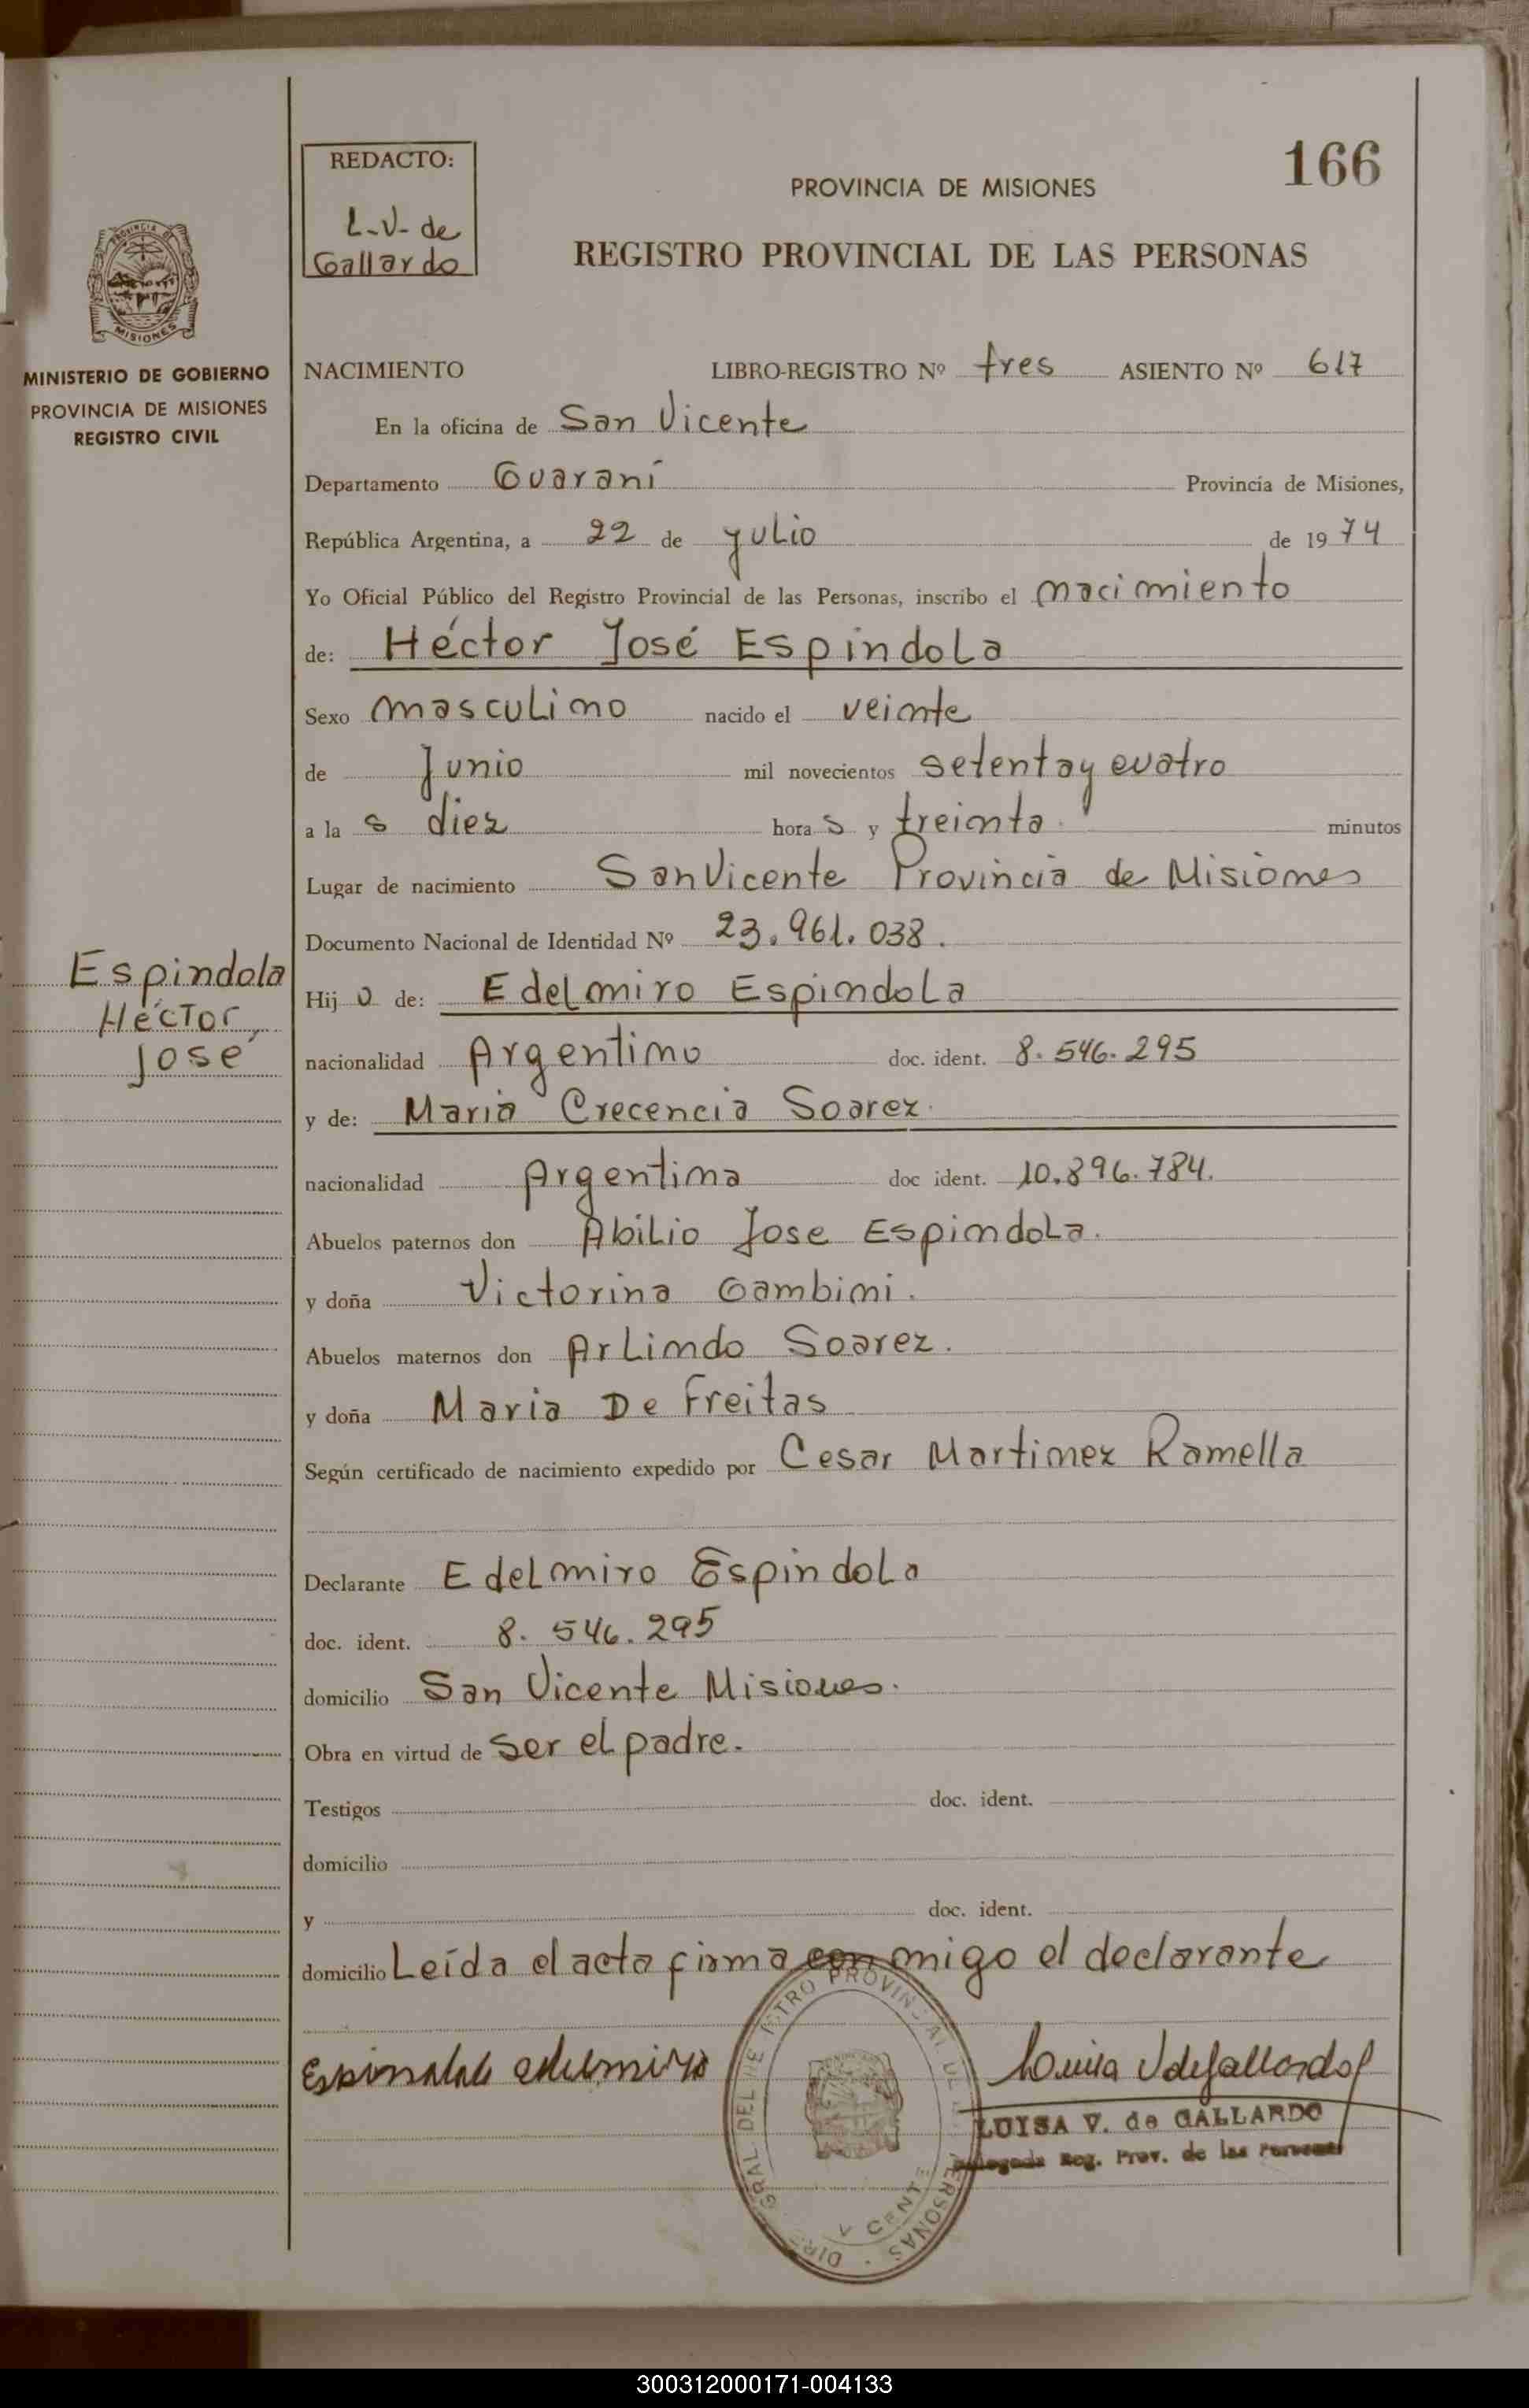 REDACTO:
L-V- de
Gallardo
166
PROVINCIA DE MISIONES
REGISTRO PROVINCIAL DE LAS PERSONAS
PROVINCIA DE
MISIONES
MINISTERIO DE GOBIERNO
PROVINCIA DE MISIONES
REGISTRO CIVIL
NACIMIENTO LIBRO-REGISTRO Nº tres ASIENTO Nº 617
En la oficina de San Vicente
Departamento Guaraní Provincia de Misiones,
República Argentina, a 22 de julio de 1974
Yo Oficial Público del Registro Provincial de las Personas, inscribo el nacimiento
de: Héctor José Espindola
Sexo masculino nacido el veinte
de Junio mil novecientos setenta y cuatro
a la s diez hora s y treinta minutos
Lugar de nacimiento San Vicente Provincia de Misiones
Documento Nacional de Identidad Nº 23.961.038.
Espindola
Héctor,
José
Hij o de: Edelmiro Espindola
nacionalidad Argentino doc. ident. 8.546.295
y de: Maria Crecencia Soarez.
nacionalidad Argentina doc ident. 10.896.784.
Abuelos paternos don Abilio Jose Espindola.
y doña Victorina Gambini.
Abuelos maternos don Arlindo Soarez.
y doña Maria De Freitas
Según certificado de nacimiento expedido por Cesar Martinez Ramella
Declarante Edelmiro Espindola
doc. ident. 8.546.295
domicilio San Vicente Misiones.
Obra en virtud de ser el padre.
Testigos doc. ident.
domicilio
y doc. ident.
domicilio Leída el acta firma con migo el declarante
Espindola edelmiro
Luisa V de Gallardo
LUISA V. de GALLARDO
Delegada Reg. Prov. de las Personas
300312000171-004133